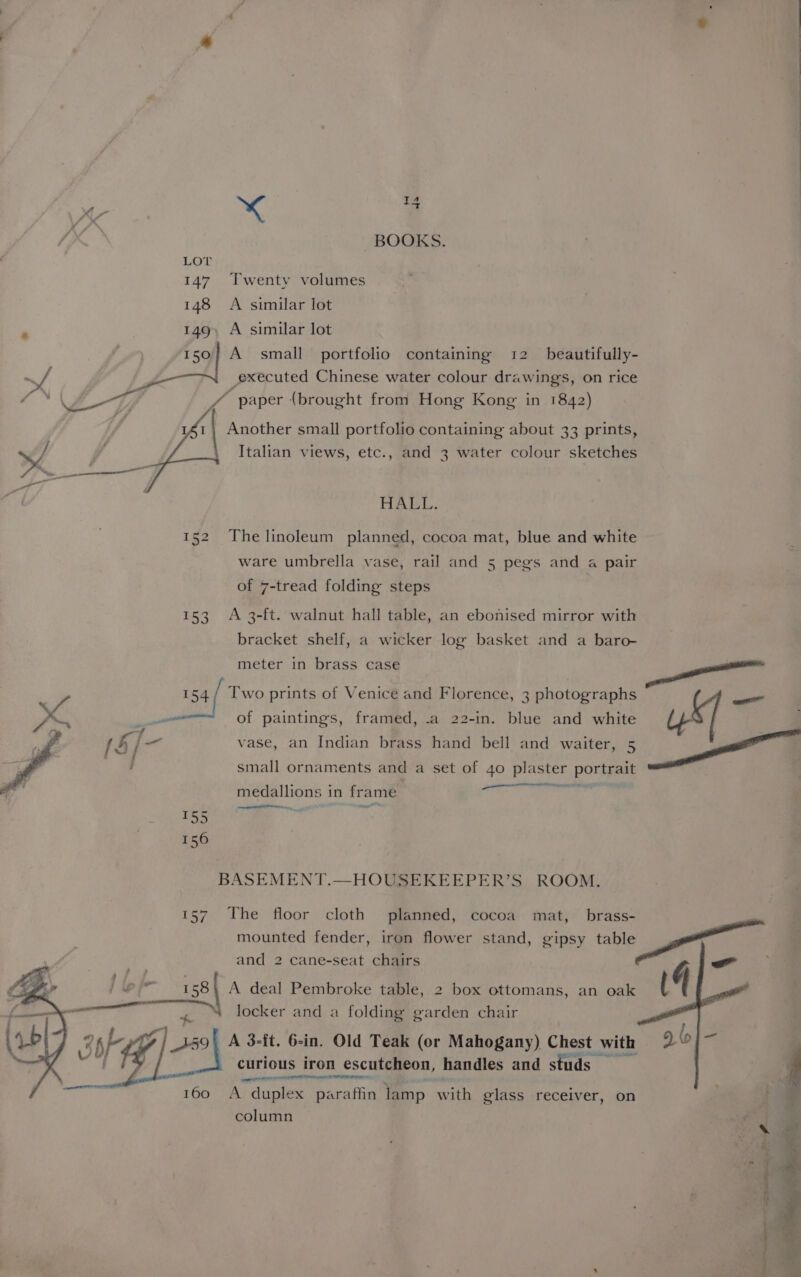 14
BOOKS.
LOT
147 Twenty volumes
148 A similar lot
149 A similar lot
150 A small portfolio containing 12 beautifully-
executed Chinese water colour drawings, on rice
paper (brought from Hong Kong in 1842)
151 Another small portfolio containing about 33 prints,
Italian views, etc., and 3 water colour sketches
HALL.
152 The linoleum planned, cocoa mat, blue and white
ware umbrella vase, rail and 5 pegs and a pair
of 7-tread folding steps
153 A 3-ft. walnut hall table, an ebonised mirror with
bracket shelf, a wicker log basket and a baro-
meter in brass case
154 Two prints of Venice and Florence, 3 photographs
of paintings, framed, a 22-in. blue and white
15/- vase, an Indian brass hand bell and waiter, 5
small ornaments and a set of 40 plaster portrait
medallions in frame
155
156
BASEMENT.—HOUSEKEEPER'S ROOM.
157 The floor cloth planned, cocoa mat, brass-
mounted fender, iron flower stand, gipsy table
and 2 cane-seat chairs
158 A deal Pembroke table, 2 box ottomans, an oak
locker and a folding garden chair
159 A 3-ft. 6-in. Old Teak (or Mahogany) Chest with 26/-
curious iron escutcheon, handles and studs
160 A duplex paraffin lamp with glass receiver, on
column